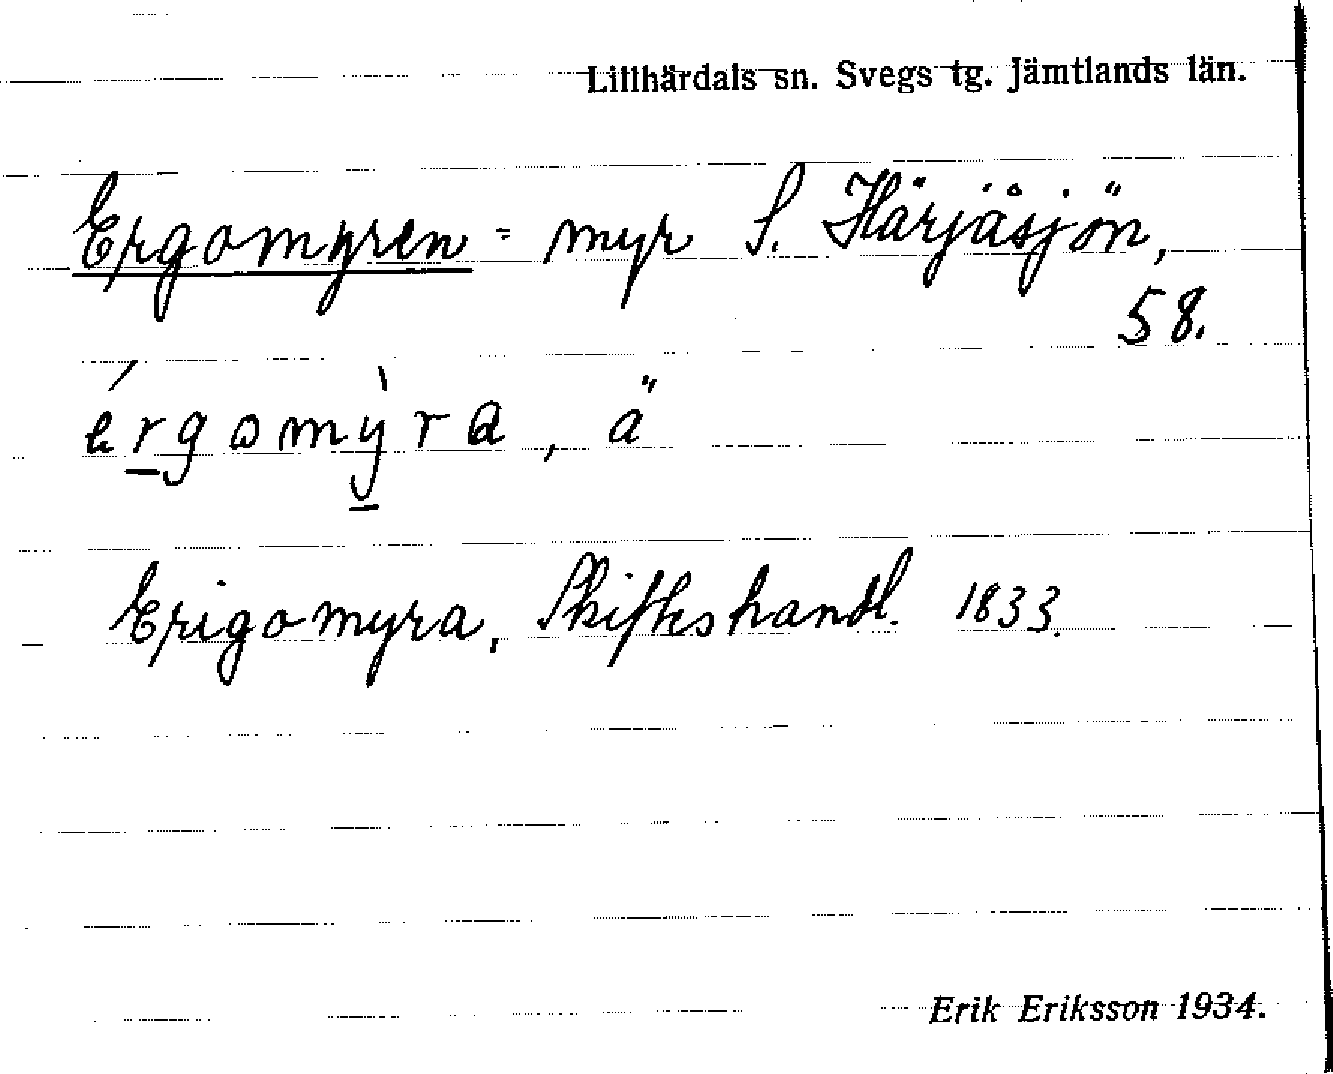 Lillhärdals sn. Svegs tg. Jämtlands län.
Ergomyren = myr S. Härjåsjön,
58.
érgomỳra, ä
Erigomyra, Skifteshandl. 1833.
Erik Eriksson 1934.